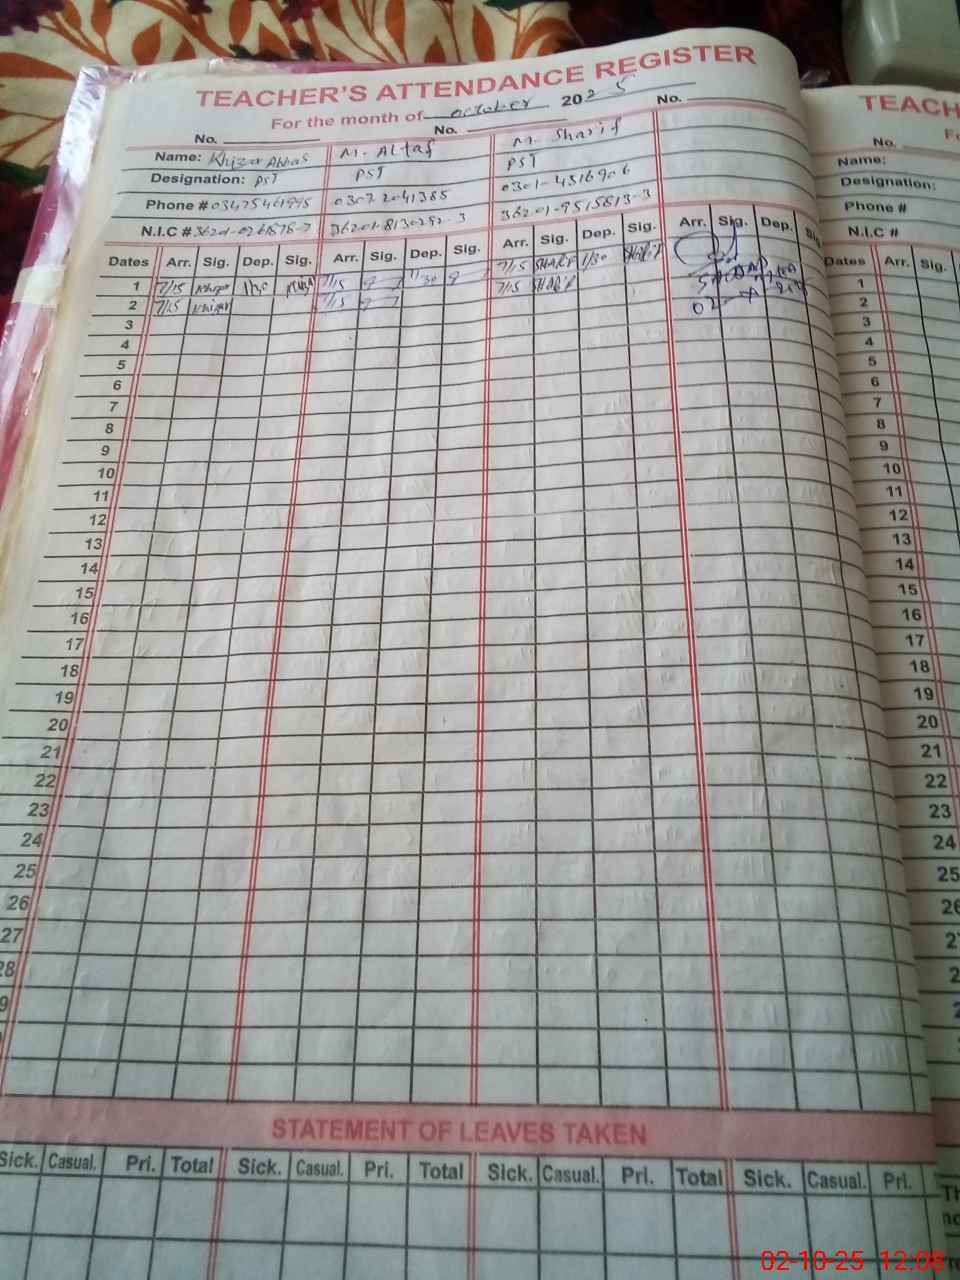 TEACHER'S ATTENDANCE REGISTER
For the month of October 2025
No. No. No.
Name: Khizar Abbas M. Altaf M. Sharif
Designation: PST PST PST
Phone # 03475461995 03072041385 0301-4516906
N.I.C # 36201-8130292-3 36201-9515813-3
Dates Arr. Sig. Dep. Sig. Arr. Sig. Dep. Sig. Arr. Sig. Dep. Sig. Arr. Sig. Dep. Sig.
1 7/15 Khizar 1/30 7/15 1/30 7/15 SHARIF 1/30 SHARIF
2 7/15 Khizar 7/15 7/15 SHARIF
02
3
4
5
6
7
8
9
10
11
12
13
14
15
16
17
18
19
20
21
22
23
24
25
26
27
28
9
STATEMENT OF LEAVES TAKEN
Sick. Casual. Pri. Total Sick. Casual. Pri. Total Sick. Casual. Pri. Total Sick. Casual. Pri.
TEACH
Fo
No.
Name:
Designation:
Phone #
N.I.C #
Dates Arr. Sig.
1
2
3
4
5
6
7
8
9
10
11
12
13
14
15
16
17
18
19
20
21
22
23
24
25
26
2
2
Th
no
02-10-25 12:08